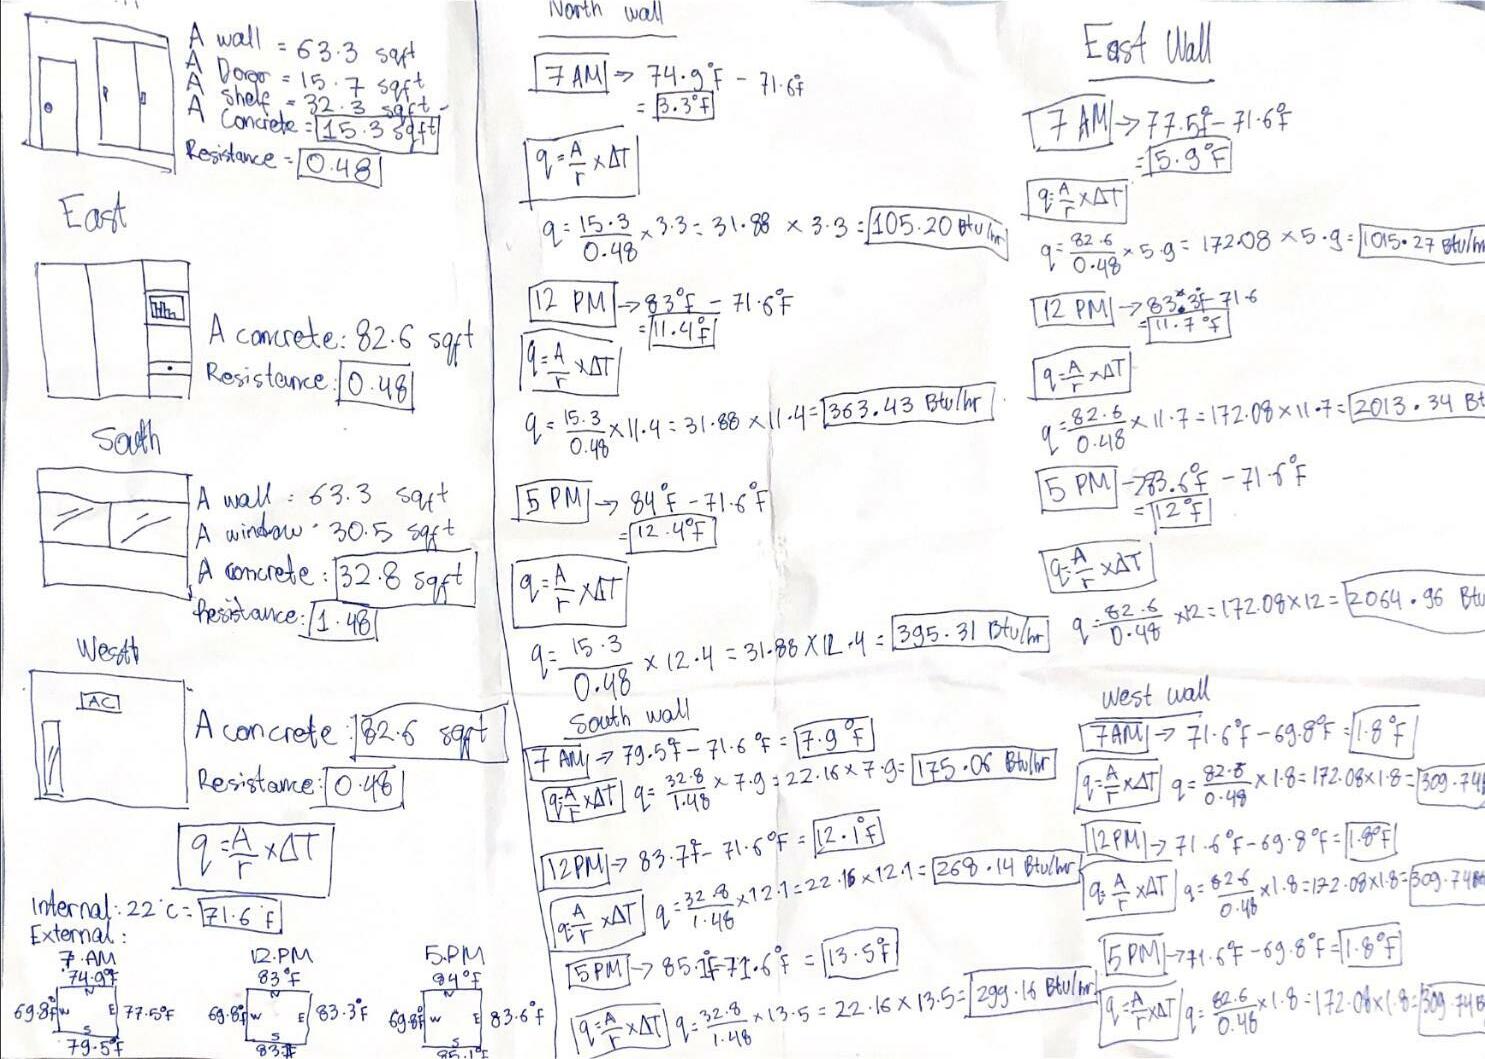 A wall = 63.3 sqft
A Door = 15.7 sqft
A shelf = 32.3 sqft
A Concrete = 15.3 sqft
Resistance = 0.48
East
A concrete: 82.6 sqft
Resistance: 0.48
South
A wall : 63.3 sqft
A window · 30.5 sqft
A concrete : 32.8 sqft
Resistance: 1.48
Westh
AC
A concrete : 82.6 sqft
Resistance: 0.48
q = A/r × ΔT
Internal: 22°C = 71.6°F
External :
7 AM
74.9°F
N
69.8°F W E 77.5°F
S
79.5°F
12.PM
83°F
N
69.8°F W E 83.3°F
S
83.7°F
5.PM
84°F
N
69.8°F W E 83.6°F
S
85.1°F
North wall
7 AM → 74.9°F - 71.6°F
= 3.3°F
q = A/r × ΔT
q = 15.3/0.48 × 3.3 = 31.88 × 3.3 = 105.20 Btu/hr
12 PM → 83°F - 71.6°F
= 11.4°F
q = A/r × ΔT
q = 15.3/0.48 × 11.4 = 31.88 × 11.4 = 363.43 Btu/hr
5 PM → 84°F - 71.6°F
= 12.4°F
q = A/r × ΔT
q = 15.3/0.48 × 12.4 = 31.88 × 12.4 = 395.31 Btu/hr
South wall
7 AM → 79.5°F - 71.6°F = 7.9°F
q = A/r × ΔT q = 32.8/1.48 × 7.9 = 22.16 × 7.9 = 175.06 Btu/hr
12PM → 83.7°F - 71.6°F = 12.1°F
q = A/r × ΔT q = 32.8/1.48 × 12.1 = 22.16 × 12.1 = 268.14 Btu/hr
5PM → 85.1°F - 71.6°F = 13.5°F
q = A/r × ΔT q = 32.8/1.48 × 13.5 = 22.16 × 13.5 = 299.16 Btu/hr
East Wall
7 AM → 77.5°F - 71.6°F
= 5.9°F
q = A/r × ΔT
q = 82.6/0.48 × 5.9 = 172.08 × 5.9 = 1015.27 Btu/hr
12 PM → 83.3°F - 71.6
= 11.7°F
q = A/r × ΔT
q = 82.6/0.48 × 11.7 = 172.08 × 11.7 = 2013.34 Bt
5 PM → 83.6°F - 71.6°F
= 12°F
q = A/r × ΔT
q = 82.6/0.48 × 12 = 172.08 × 12 = 2064.96 Btu
west wall
7AM → 71.6°F - 69.8°F = 1.8°F
q = A/r × ΔT q = 82.6/0.48 × 1.8 = 172.08 × 1.8 = 309.74
12PM → 71.6°F - 69.8°F = 1.8°F
q = A/r × ΔT q = 82.6/0.48 × 1.8 = 172.08 × 1.8 = 309.74 Bt
5 PM → 71.6°F - 69.8°F = 1.8°F
q = A/r × ΔT q = 82.6/0.48 × 1.8 = 172.08 × 1.8 = 309.74 B